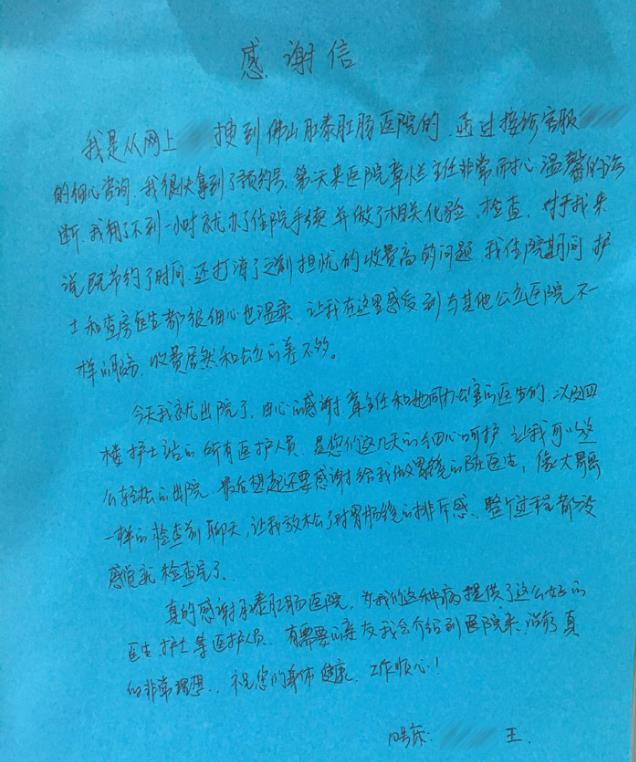 感谢信
我是从网上 搜到佛山肛泰肛肠医院的，通过接诊客服
的细心咨询，我很快拿到了预约号，第一天来医院覃烂主任非常耐心温馨的诊
断，我用了不到一小时就办了住院手续并做了相关化验、检查，对于我来
说既节约了时间，还打消了之前担忧的收费高的问题，我住院期间护
士和查房医生都很细心也温柔，让我在这里感受到与其他公立医院不一
样的服务，收费居然和公立的差不多。
今天我就出院了，由心的感谢覃主任和她同办公室的医生的，以及四
楼护士站的所有医护人员，是您们这几天的细心呵护，让我可以这
么轻松的出院，最后想起还要感谢给我做胃镜的陈医生，像大哥哥
一样的检查前聊天，让我放松了对胃肠镜的排斥感、整个过程都没
感觉就检查完了。
真的感谢肛泰肛肠医院，为我们这种病提供了这么好的
医生护士等医护人员，有需要的亲友我会介绍到医院来，治疗真
的非常理想，祝您们身体健康，工作顺心！
王